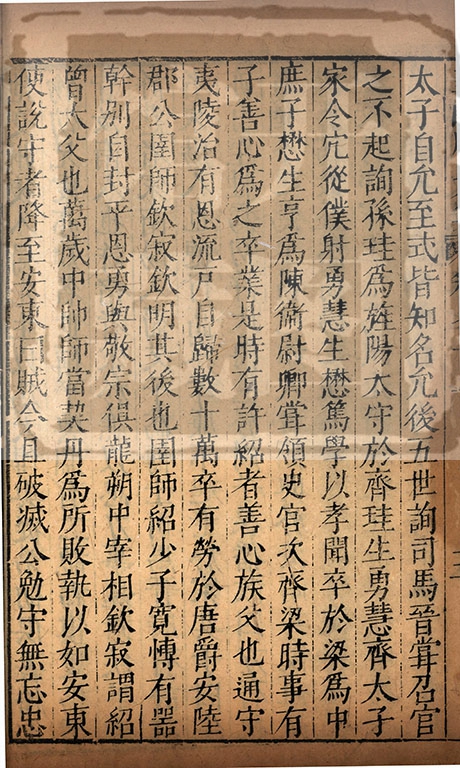 太子自允至式皆知名允後五世詢司馬晉嘗召官
之不起詢孫珪為旌陽太守於齊珪生勇慧齊太子
家令宂從僕射勇慧生懋篤學以孝聞卒於梁為中
庶子懋生亨為陳衞尉卿嘗領史官次齊梁時事有
子善心為之卒業是時有許紹者善心族父也通守
夷陵治有恩流户自歸數十萬卒有勞於唐爵安陸
郡公圉師欽寂欽明其後也圉師紹少子寛愽有噐
幹别自封平恩勇與敬宗俱龍朔中宰相欽寂謂紹
曾大父也萬歲中帥師當契丹為所敗執以如安東
使說守者降至安東曰賊今且破滅公勉守無忘忠